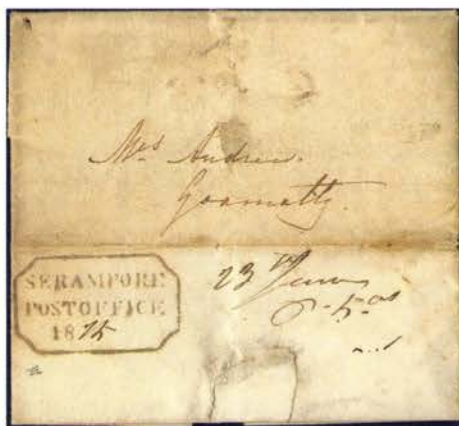 Mrs Andrew.
Goamatty.
SERAMPORE
POSTOFFICE
18
23rd June